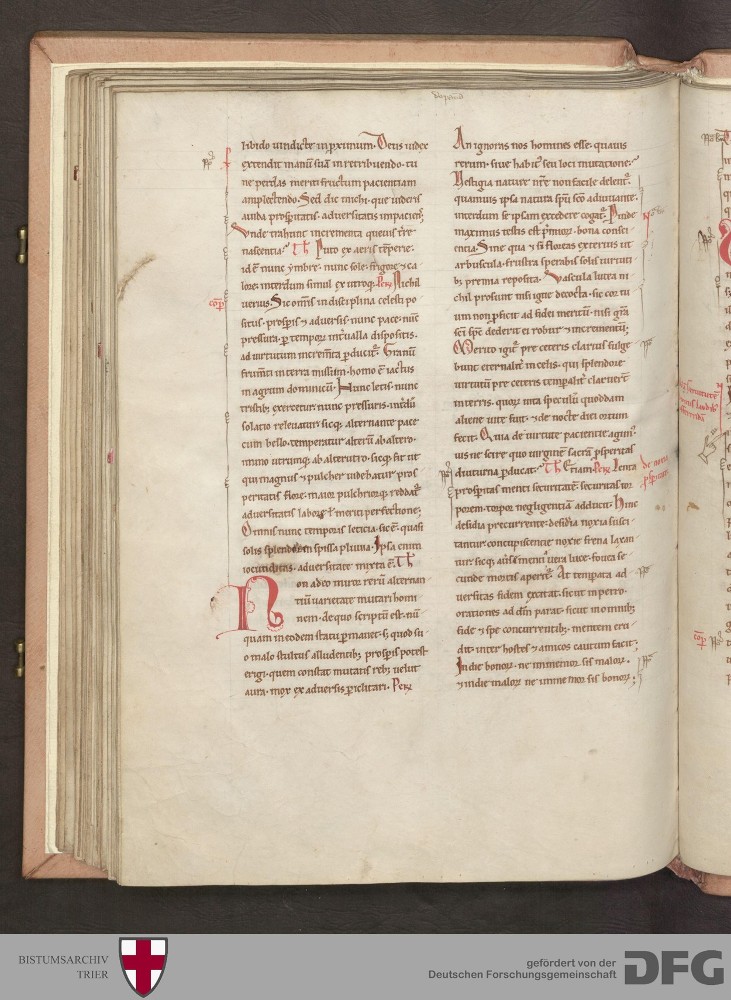 libido uindicte in pximum. Deus iudex
extendit manũ suã in retribuendo. tu
ne perdas meriti fructum pacientiam
amplectendo. Sed dic michi. que uideris
auida prospitatis. aduersitatis impaciens;
Vnde trahunt incrementa queuis tre
nascentia; Th Puto ex aeris tẽperie.
id ẽ nunc ymbre. nunc sole. frigore ⁊ ca
lore. interdum simul ex utroq;. Petr Nichil
uerius. Sic omis in disciplina celesti po
situs. prospis ⁊ aduersis. nunc pace. nũc
pressura. p tempoꝝ intualla dispositis.
ad uirtutum incremta pducit. Granũ
frumti in terra missum. homo ẽ iactus
in agrum dominicũ. Hunc letis. nunc
tristib; exercetur. nunc pressuris. intdũ
solatio releuatur. sicq; alternante pace
cum bello. temperatur alterũ ab altero.
immo utrumq; ab alterutro. sicq; fit ut
qui magnus ⁊ pulcher uidebatur pros
peritatis flore. maior pulchriorq; reddat
aduersitatis labore. meriti perfectione;
Omnis nunc temporis leticia. sic ẽ. quasi
solis splendor in spissa pluuia. Ipsa enim
iocunditas. aduersitate mixta ẽ. Th
Non adeo muror rerũ alternan
tiũ uarietate mutari homi
nem. de quo scriptũ est. nũ
quam in eodem statu pmanet. s; quod su
o malo stultus alludentib; prospis potest
erigi. quem constat mutatis reb; uelut
aura. mox ex aduersis piclitari. Petr
An ignoras nos homines esse. quauis
rerum. siue habit seu loci mutatione;
Vestigia nature nre non facile delent.
quamuis ipsa natura spu sco adiuuante.
interdum se ipsam excedere cogat. Vnde
maximus testis est pmior. bona consci
entia. Sine qua ⁊ si floreas exterius ut
arbuscula. frustra sperabis solis iusticie
b; premia reposita. Vascula lutea ni
chil prosunt nisi igne decocta. sic cor tu
um non pficit ad fidei meritũ. nisi gra
sci spc dederit ei robur ⁊ incrementũ;
Merito igit pre ceteris clarius fulge
bunt eternalit in celis. qui splendore
uirtutũ pre ceteris tempalit claruert
in terris. quoꝝ uita speculũ quoddam
aliene uite fuit. ⁊ de nocte diei ortum
fecit. Quia de uirtute pacientie agim.
uis ne scire quo uirginẽ sacrã pspitas
diuturna pducat; Th Etiam. Petr Lenta
prospitas menti securitatẽ. securitas tor
porem. torpor negligentiã adducit. Hinc
desidia precurrente. desidia noxia susci
tantur. concupiscentie noxie frena laxan
tur. sicq; auersẽ menti uera luce. fouea se
cunde mortis aperit. At tempata ad
uersitas fidem excitat. sicut in perro.
orationes ad dm parat. sicut in omnib;
fide ⁊ spe concurrentib;. mentem eru
dit. inter hostes ⁊ amicos cautum facit;
In die bonoꝝ. ne inmemor sis maloꝝ.
⁊ in die maloꝝ ne inmemor sis bonoꝝ;
BISTUMSARCHIV
TRIER
gefördert von der
Deutschen Forschungsgemeinschaft
DFG